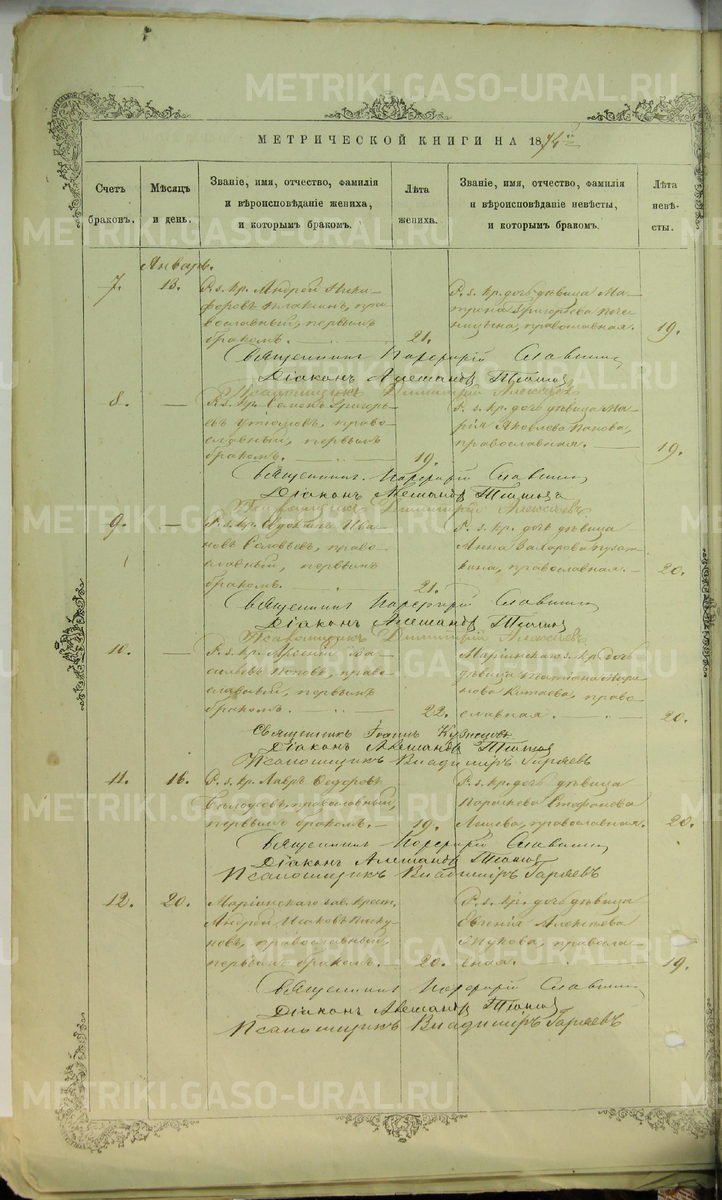 METRIKI.GASO-URAL.RU
МЕТРИЧЕСКОЙ КНИГИ НА 1874й
Счетъ браковъ.
Мѣсяцъ и день.
Званіе, имя, отчество, фамилія
и вѣроисповѣданіе жениха,
и которымъ бракомъ.
Лѣта
жениха.
Званіе, имя, отчество, фамилія
и вѣроисповѣданіе невѣсты,
и которымъ бракомъ.
Лѣта
невѣ-
сты.
Январь.
7.
13.
Р. з. кр. Андрей Ники-
форовъ православный, первымъ
бракомъ.
21.
Р. з. кр. дочь дѣвица Ма-
трена Григорьева
православная.
19.
Священникъ Порфирій Славнинъ
Діаконъ Алешандръ
Псаломщикъ Димитрій Алексѣевъ
8.
—
Р. з. кр. Семенъ Григорь-
евъ право-
славный, первымъ
бракомъ. —
19.
Р. з. кр. дочь дѣвица Ма-
рія Яковлева Попова,
православная. —
19.
Священникъ Порфирій Славнинъ
Діаконъ Алешандръ
Псаломщикъ Димитрій Алексѣевъ
9.
—
Р. з. кр. Ива-
новъ Соловьевъ, право-
славный, первымъ
бракомъ.
21.
Р. з. кр. дочь дѣвица
Анна Захарова
православная. —
20.
Священникъ Порфирій Славнинъ
Діаконъ Алешандръ
Псаломщикъ Димитрій Алексѣевъ
10.
—
Р. з. кр. Арсеній Ва-
сильевъ Поповъ, право-
славный, первымъ
бракомъ. —
22.
Маріинскаго з. кр. дочь
дѣвица Татіана
Китаева, право-
славная.
20.
Священникъ Іоаннъ Кузнецовъ
Діаконъ Алешандръ
Псаломщикъ Владиміръ Гаряевъ
11.
16.
Р. з. кр. Лавръ Ѳедоровъ
православный,
первымъ бракомъ. —
19.
Р. з. кр. дочь дѣвица
Параскева Стефанова
православная.
20.
Священникъ Порфирій Славнинъ
Діаконъ Алешандръ
Псаломщикъ Владиміръ Гаряевъ
12.
20.
Маріинскаго зав. крест.
Андрей Исаковъ Писку-
новъ, православный,
первымъ бракомъ. —
20.
Р. з. кр. дочь дѣвица
Евгенія Алексѣева
правосла-
вная.
19.
Священникъ Порфирій Славнинъ
Діаконъ Алешандръ
Псаломщикъ Владиміръ Гаряевъ